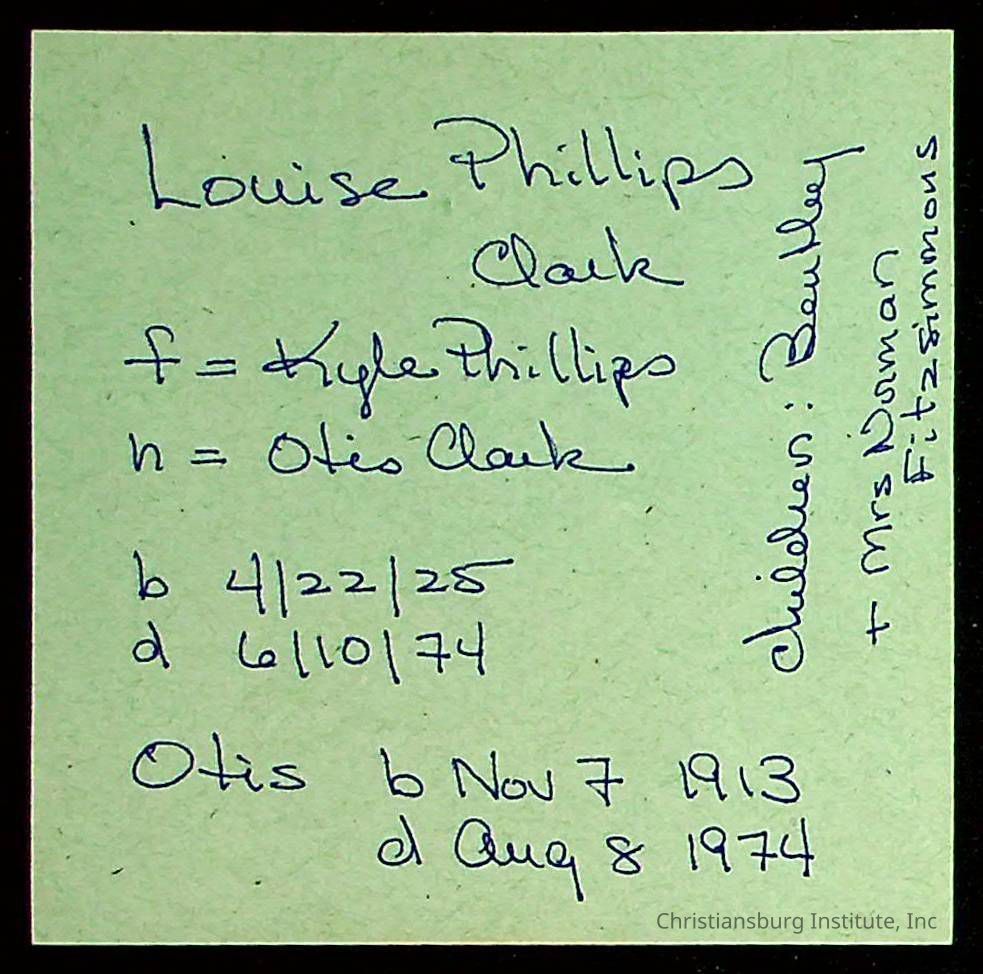 Louise Phillips
Clark
f = Kyle Phillips
h = Otis Clark
b 4/22/25
d 6/10/74
Otis b Nov 7 1913
d Aug 8 1974
children:
+ Mrs Norman
Fitzsimmons
Christiansburg Institute, Inc